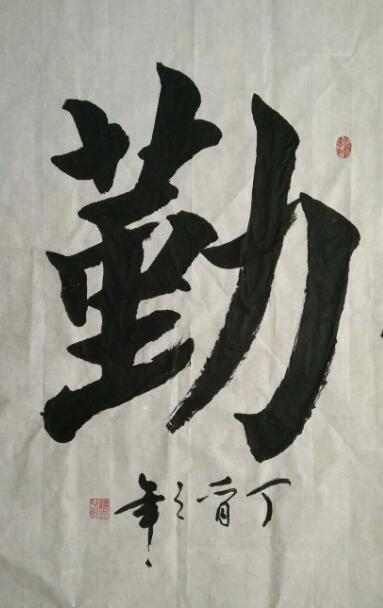 勤
丁酉之年